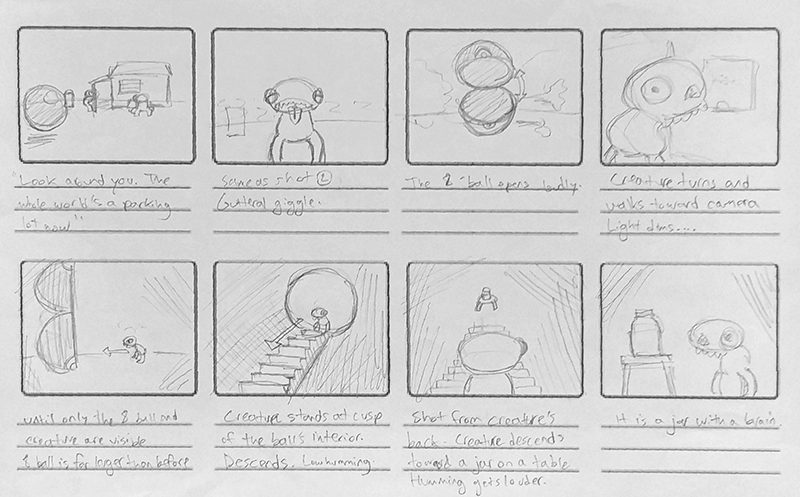 "Look around you. The
whole world's a parking
lot now"
Same as shot 2
Gutteral giggle.
The 8 ball opens loudly.
Creature turns and
walks toward camera
Light dims....
until only the 8 ball and
creature are visible
8 ball is far larger than before
Creature stands at cusp
of the ball's interior.
Descends. Low humming
Shot from creature's
back. Creature descends
toward a jar on a table
Humming gets louder.
It is a jar with a brain.